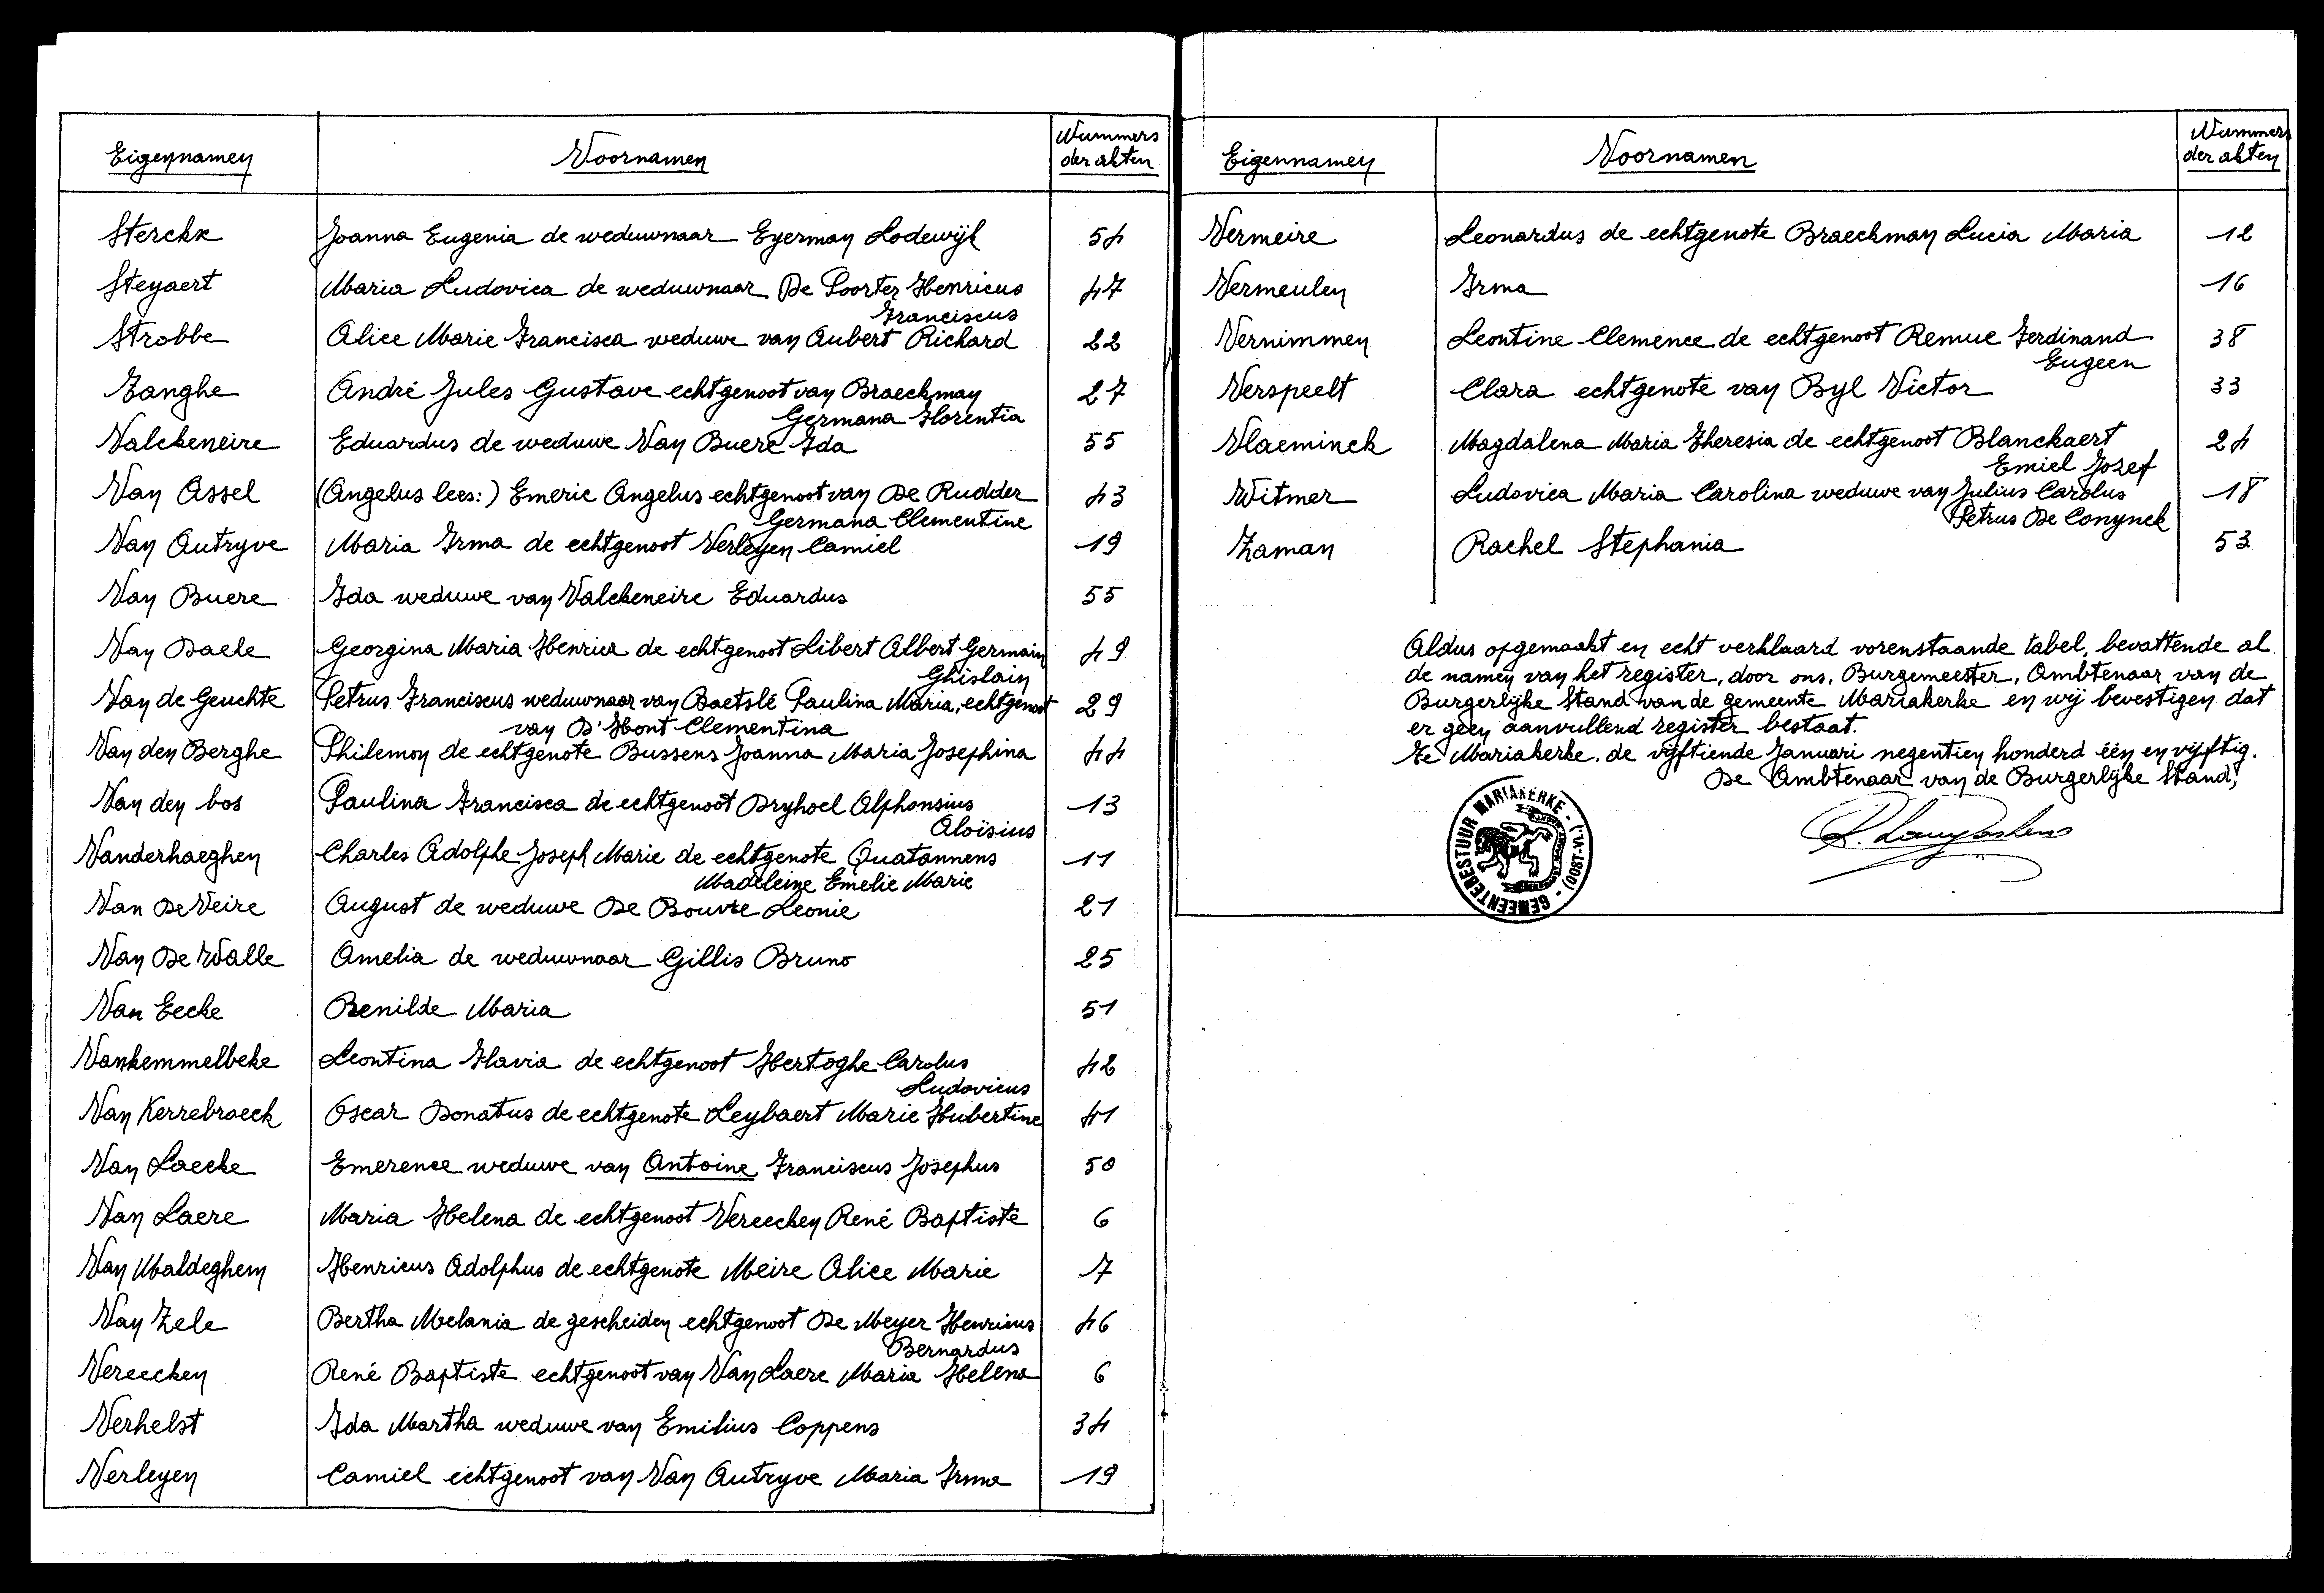 Eigennamen Voornamen Nummers der akten
Sterckx Joanna Eugenia de weduwnaar Eyerman Lodewijk 54
Steyaert Maria Ludovica de weduwnaar De Poorter Henricus 47
Franciscus
Strobbe Alice Marie Francisca weduwe van Aubert Richard 22
Tanghe André Jules Gustave echtgenoot van Braeckman 27
Germana Florentia
Valckeneire Eduardus de weduwe Van Buere Ida 55
Van Assel (Angelus lees:) Emeric Angelus echtgenoot van De Rudder 43
Germana Clementine
Van Autryve Maria Irma de echtgenoot Verleyen Camiel 19
Van Buere Ida weduwe van Valckeneire Eduardus 55
Van Daele Georgina Maria Henrica de echtgenoot Libert Albert Germain 49
Ghislain
Van de Geuchte Petrus Franciscus weduwnaar van Baetslé Paulina Maria, echtgenoot 29
van D'Hont Clementina
Van den Berghe Philemon de echtgenote Bussens Joanna Maria Josephina 44
Van den bos Paulina Francisca de echtgenoot Dryhoel Alphonsius 13
Aloïsius
Vanderhaeghen Charles Adolphe Joseph Marie de echtgenote Quatannens 11
Madeleine Emelie Marie
Van De Veire August de weduwe De Bouvre Leonie 21
Van De Walle Amelia de weduwnaar Gillis Bruno 25
Van Eecke Renilde Maria 51
Vankemmelbeke Leontina Flavia de echtgenoot Hertoghe Carolus 42
Ludovicus
Van Kerrebroeck Oscar Donatus de echtgenote Leybaert Marie Hubertine 41
Van Laecke Emerence weduwe van Antoine Franciscus Josephus 50
Van Laere Maria Helena de echtgenoot Vereecken René Baptiste 6
Van Maldeghem Henricus Adolphus de echtgenote Meire Alice Marie 7
Van Zele Bertha Melania de gescheiden echtgenoot De Meyer Henricus 46
Bernardus
Vereecken René Baptiste echtgenoot van Van Laere Maria Helena 6
Verhelst Ida Martha weduwe van Emilius Coppens 34
Verleyen Camiel echtgenoot van Van Autryve Maria Irma 19
Eigennamen Voornamen Nummers der akten
Vermeire Leonardus de echtgenote Braeckman Lucia Maria 12
Vermeulen Irma 16
Vernimmen Leontine Clemence de echtgenoot Remue Ferdinand 38
Eugeen
Verspeelt Clara echtgenote van Byl Victor 33
Vlaeminck Magdalena Maria Theresia de echtgenoot Blanckaert 24
Emiel Jozef
Witmer Ludovica Maria Carolina weduwe van Julius Carolus 18
Petrus De Conynck
Zaman Rachel Stephania 53
Aldus opgemaakt en echt verklaard vorenstaande tabel, bevattende al
de namen van het register, door ons, Burgemeester, Ambtenaar van de
Burgerlijke Stand van de gemeente Mariakerke en wij bevestigen dat
er geen aanvullend register bestaat.
Te Mariakerke, de vijftiende Januari negentien honderd één en vijftig.
De Ambtenaar van de Burgerlijke Stand,
GEMEENTEBESTUUR MARIAKERKE - (OOST-VL.)